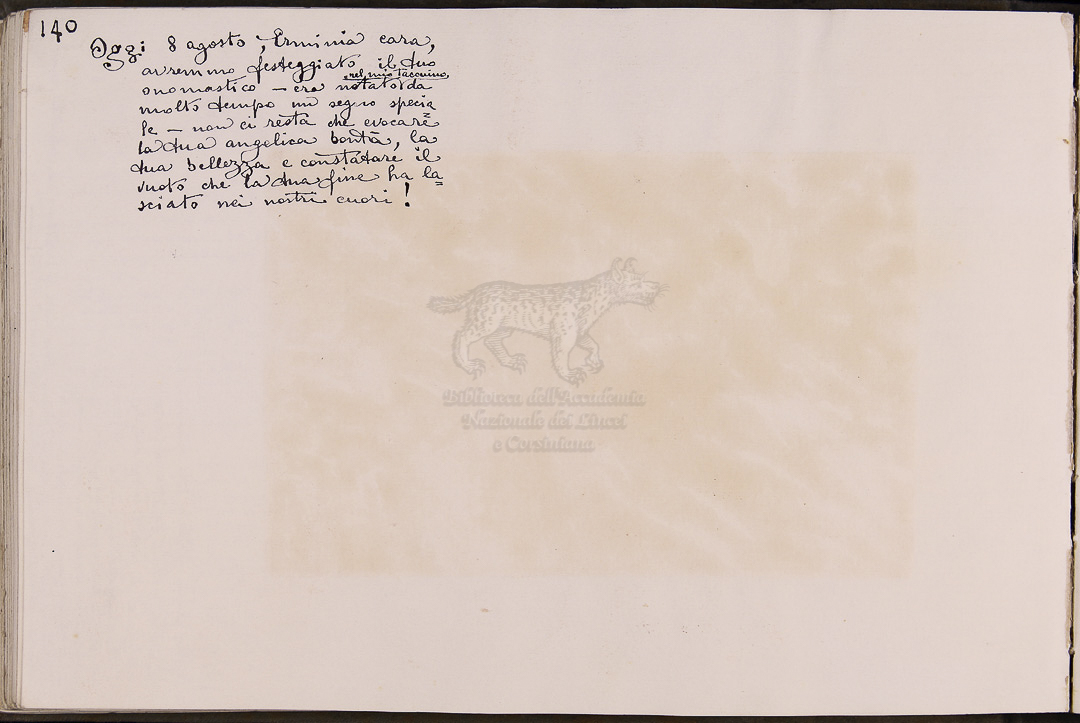 140
Oggi 8 agosto, Erminia cara,
avremmo festeggiato il tuo
nel mio taccuino
onomastico — era notato da
molto tempo un segno specia
le — non ci resta che evocare
la tua angelica bontà, la
tua bellezza e constatare il
vuoto che la tua fine ha la=
sciato nei nostri cuori!
Biblioteca dell'Accademia
Nazionale dei Lincei
e Corsiniana